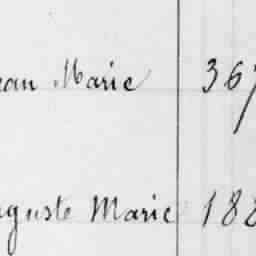 ean Marie 367
guste Marie 188